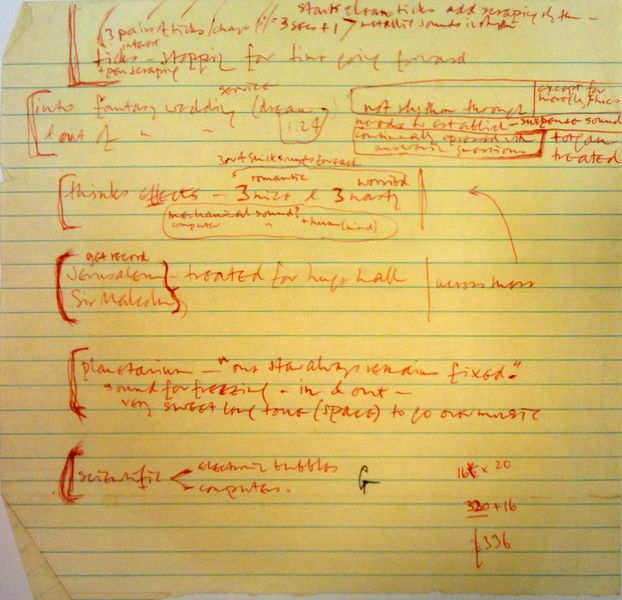 starts clean ticks add scraping rhythm -
3 pairs of ticks / change = 3 secs + 1 metallic sounds in rhythm
interest
ticks - stopping for time going forward
+ pen scraping
service
into fantasy wedding (dream
& out of " " 1.24
not rhythm through
except for
needs to establish - suspense sound
continually opened with
answering questions
+ organ
treated
3 or 4 quick sounds for each
romantic worried
thinks effects - 3 nice & 3 nasty
mechanical sound? + hum (mind)
computer "
get record
Jerusalem - treated for huge hall
Sir Malcolm
across these
planetarium - "our star always remains fixed"
sound for freezing - in & out -
very sweet long tone (space) to go over music
scientific electronic bubbles
computers.
G
16 x 20
320 + 16
336